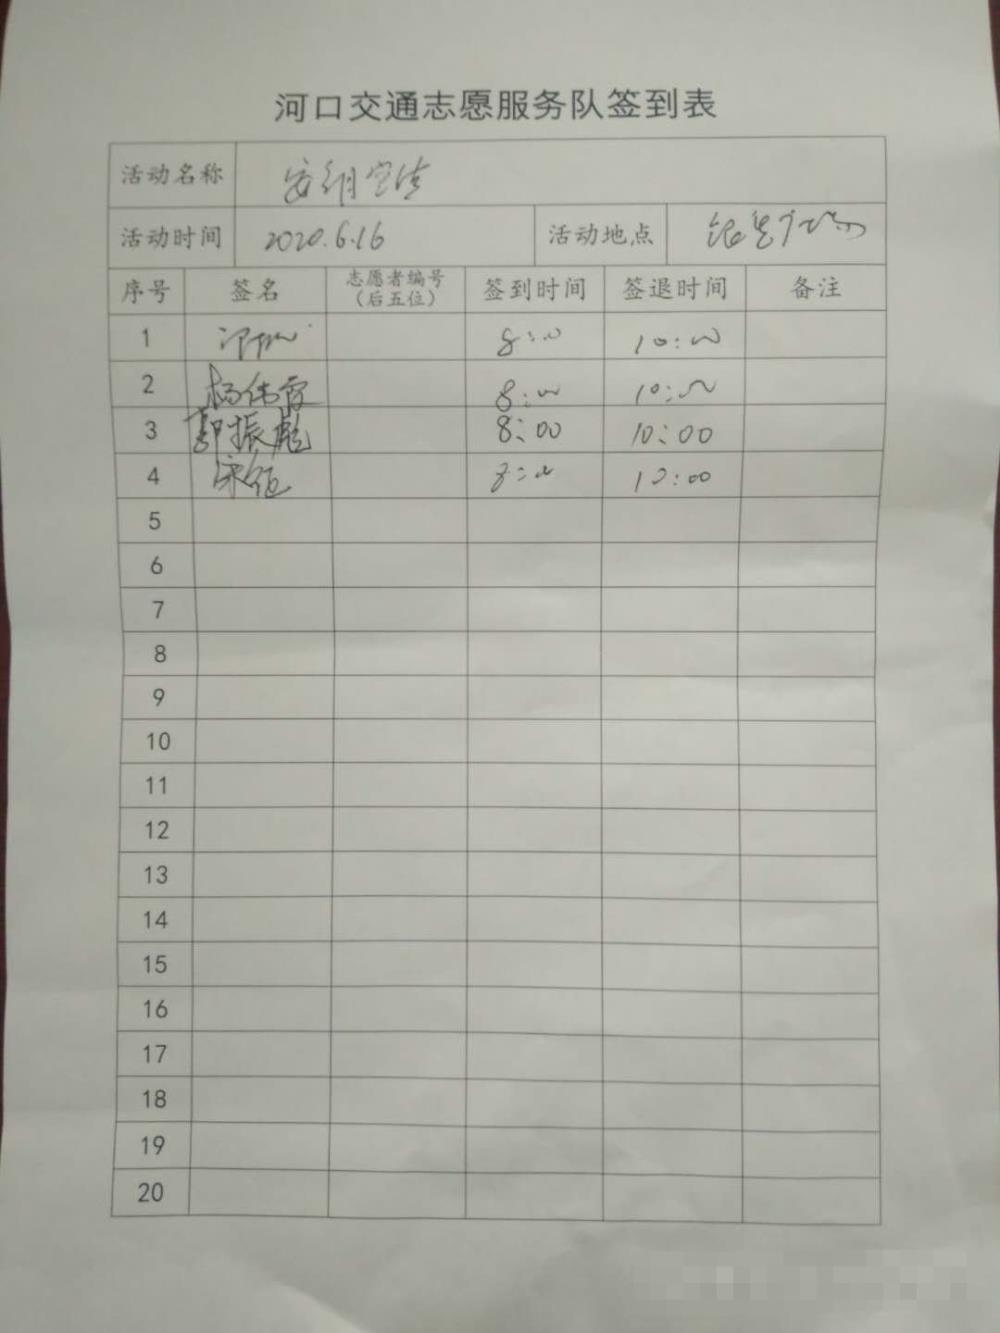 河口交通志愿服务队签到表
活动名称
活动时间 2020.6.16 活动地点
序号 签名 志愿者编号（后五位） 签到时间 签退时间 备注
1 8:00 10:00
2 杨伟霞 8:00 10:00
3 郭振彪 8:00 10:00
4 8:00 10:00
5
6
7
8
9
10
11
12
13
14
15
16
17
18
19
20